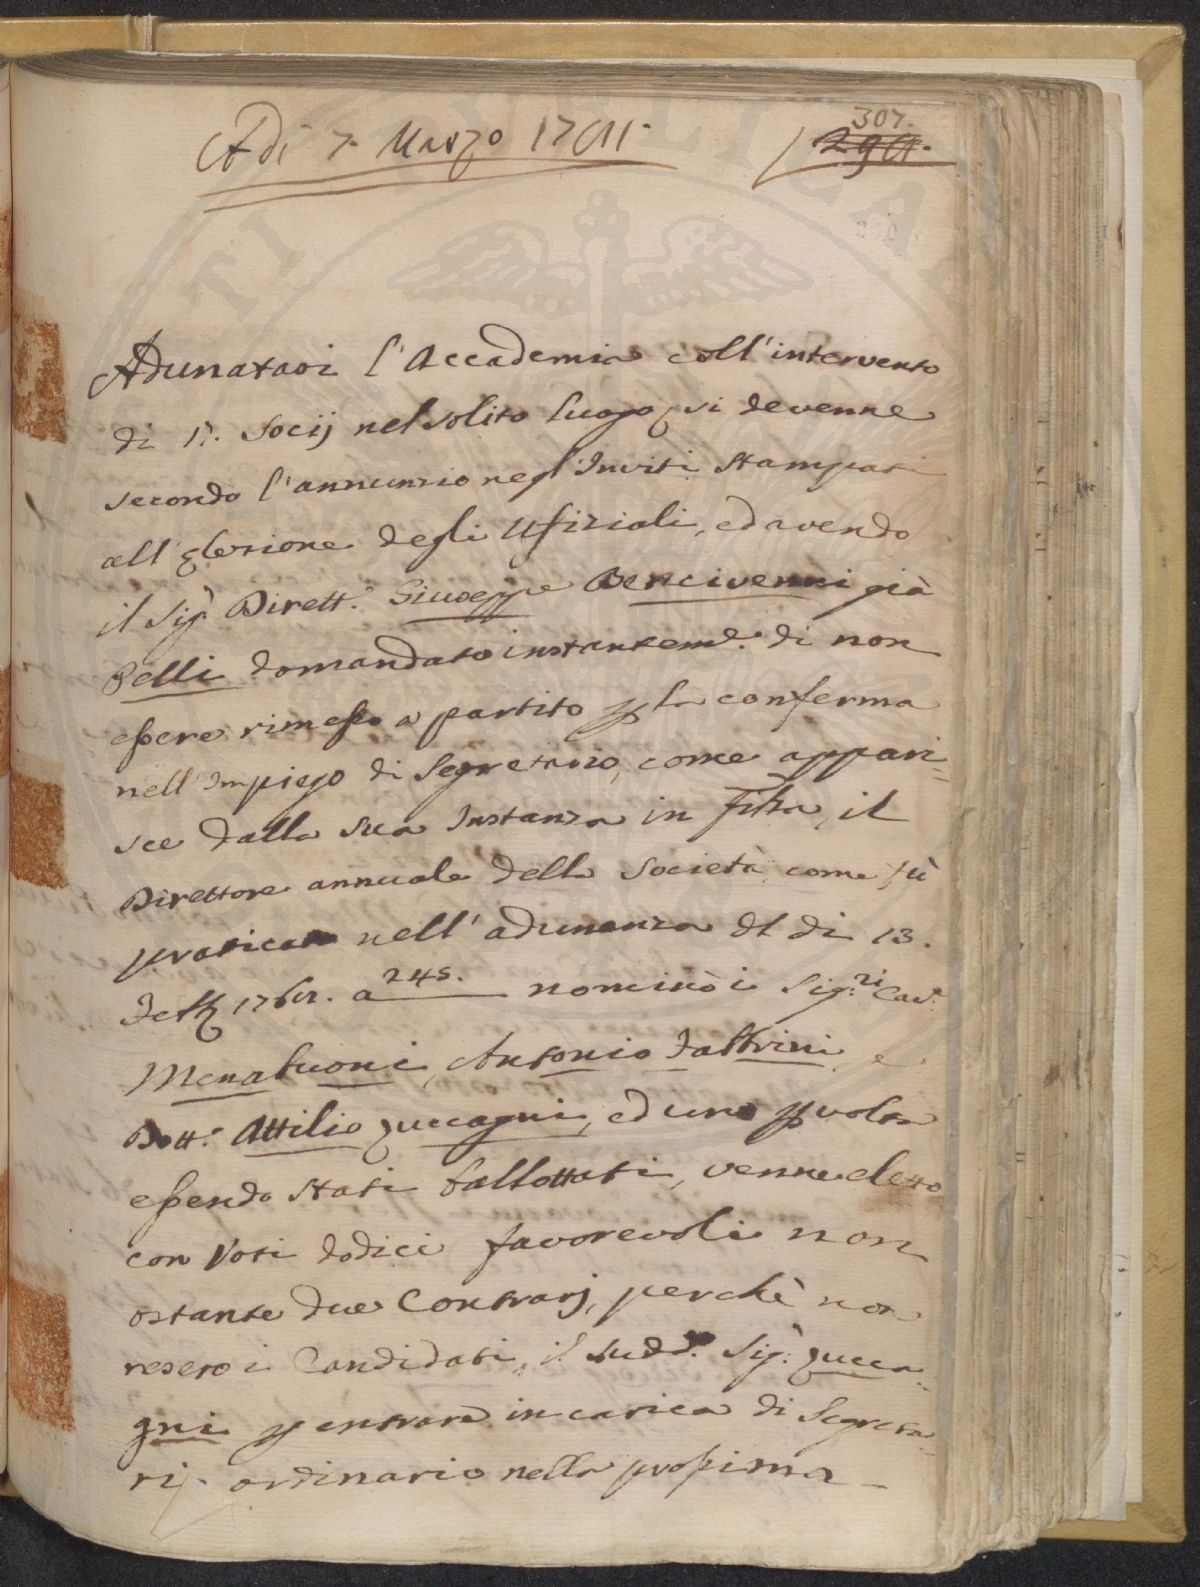 Adi 7. Marzo 17
307.
Adunatasi l'Accademia coll'intervento
di 17. Socij nel solito luogo, si devenne
secondo l'annunzio negl'Inviti stampati
all'Elezione degli Ufiziali, ed avendo
il Sig.r Dirett.e Giuseppe Bencivenni già
Pelli domandato instantem.e di non
essere rimesso a partito p la conferma
nell'Impiego di Segretario, come appari=
sce dalla sua Instanza in Filza, il
Direttore annuale della Società, come fù
praticato nell'adunanza dl dì 13.
a 245. nominò i Sig.ri Cav.e
Menabuoni, Antonio Fabbrini, e
Dott.e Attilio Zuccagni, ed uno p volta
essendo stati ballottati, venne eletto
con Voti dodici favorevoli non
ostante due Contrarj, perchè non
resero i Candidati, il sudd.o Sig.r Zucca=
gni p entrare in carica di Segreta=
rio ordinario nella prossima